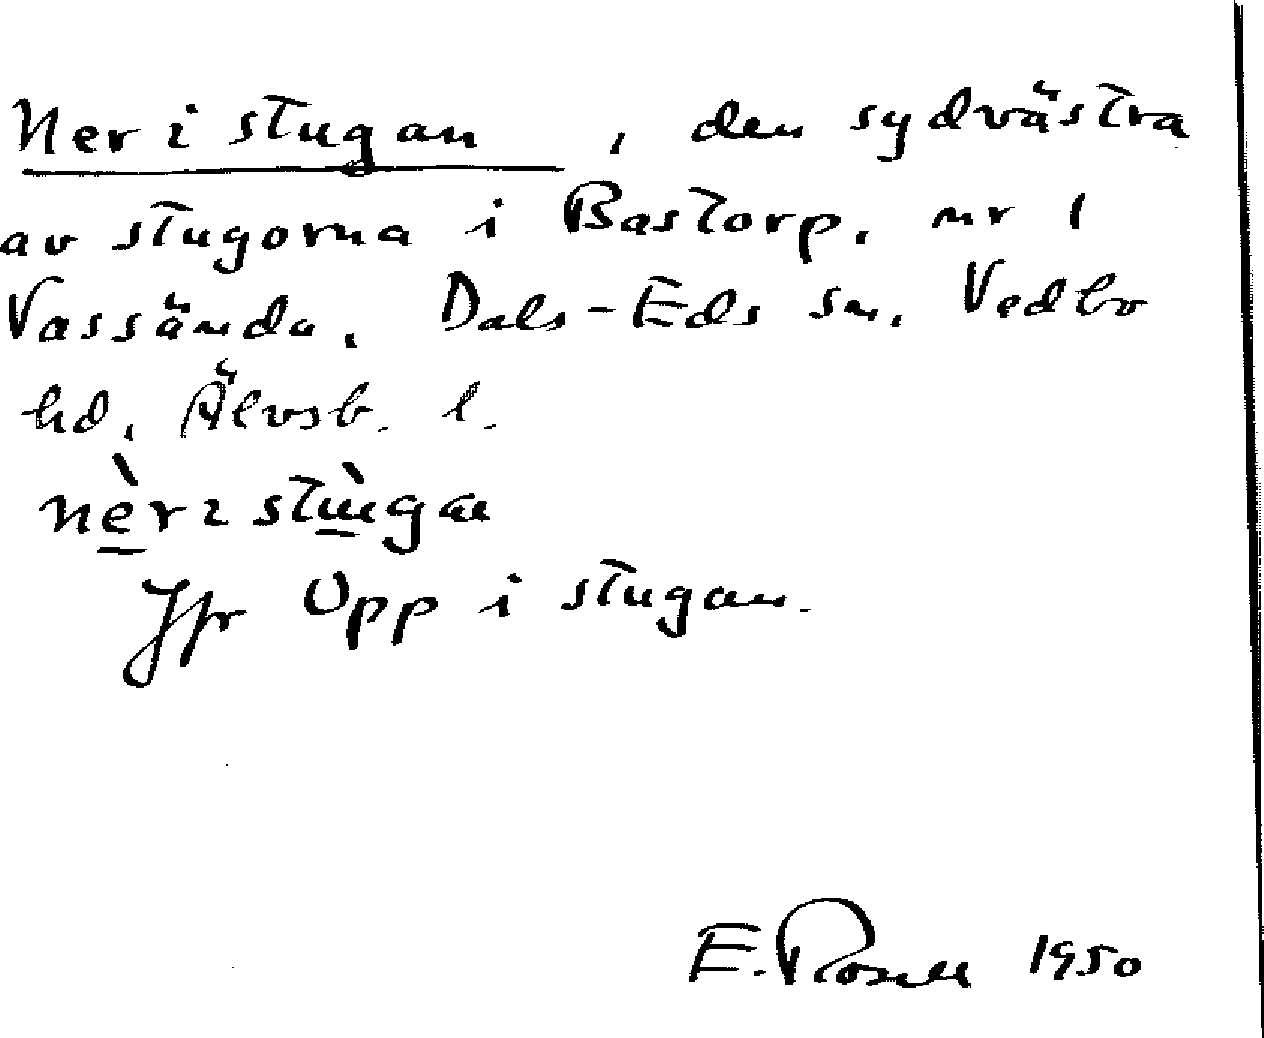 Ner i stugan , den sydvästra
av stugorna i Bastorp, nr 1
Vassända, Dals-Eds sn, Vedbo
hd, Älvsb. l.
nèrɩ stùgan
Jfr Opp i stugan.
E. Rosell 1950